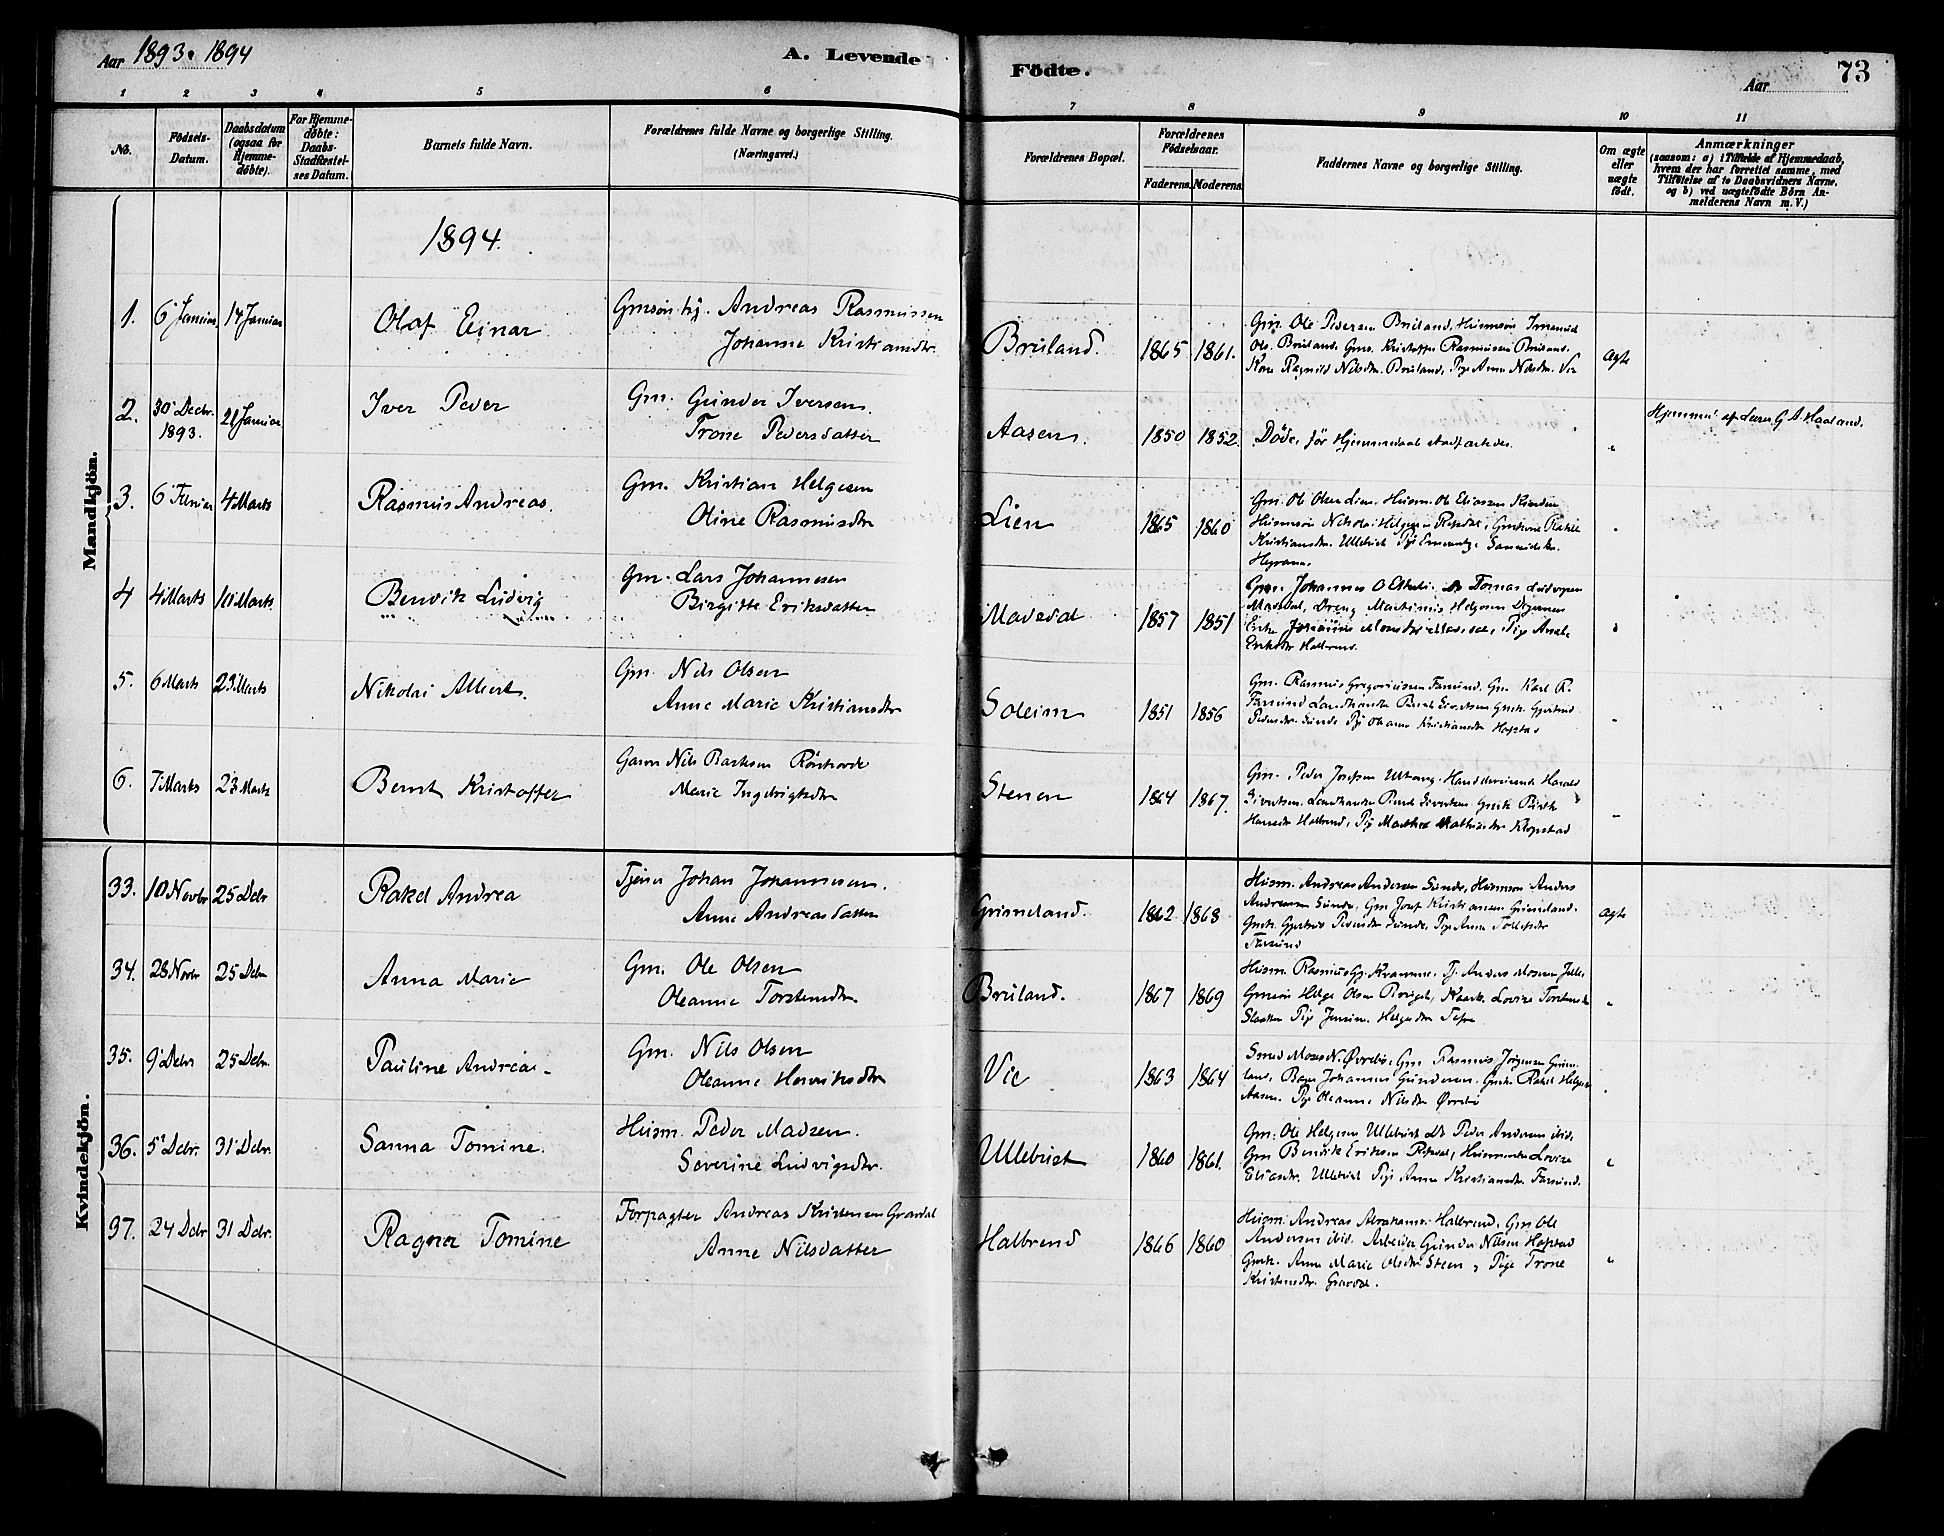 Aar 1893. 1894
A. Levende
Födte.
Aar
73
1 2 3 4 5 6 7 8 9 10 11
No.
Födsels-
Datum.
Daabsdatum
(ogsaa for
Hjemme-
döbte).
For Hjemme-
döbte:
Daabs-
Stadfæstel-
ses Datum.
Barnets fulde Navn.
Forældrenes fulde Navne og borgerlige Stilling.
(Næringsvei.)
Forældrenes Bopæl.
Forældrenes
Födselsaar.
Faderens. Moderens.
Faddernes Navne og borgerlige Stilling.
Om ægte
eller
uægte
födt.
Anmærkninger
(saasom: a) i Tilfælde af Hjemmedaab,
hvem der har forrettet samme, med
Tilföielse af to Daabsvidners Navne,
og b) ved uægtefödte Börn An-
melderens Navn m. V.)
Mandkjön.
1894.
1. 6 Januar 14 Januar Olaf Einar
Gmsön hg. Andreas Rasmussen
Johanne Kristiansdtr.
Bruland. 1865 1861.
Gm. Ole Pedersen Bruland, Husmsön
Ols. Bruland. Gms. Kristoffer Rasmussen Bruland.
Kone Ragnild Nilsdtr. Bruland, Pige Anna Nilsdtr. Vie
Ægte
2. 30 Decbr. 1893. 21 Januar Iver Peder
Gm. Gunder Iversen.
Trone Pedersdatter
Aasen. 1850 1852.
Döde, för Hjemmedaab stadfæstedes.
"
Hjemmed. af Lærer G. A. Haaland.
3. 6 4 Marts Rasmus Andreas.
Gm. Kristian Helgesen
Oline Rasmusdtr
Lien 1865 1860
Gm. Ole Olsen Lien. Husm. Ole Eliassen
Husmsön Nikolai Helgesen Gmkone Rakel
Kristiansdtr. Ullebust Pige Samuelsdtr.
4 4 Marts 10 Marts Bendik Ludvig
Gm. Lars Johannesen
Birgitte Eriksdatter
Mavedal 1857 1851
Gm. Johannes O Tomas Ludvigsen
Mavdal, Dreng Martinus Helgesen
Enke Pige
Eriksdtr Halbrend.
5. 6 Marts 23 Marts Nikolai Albert.
Gm. Nils Olsen
Anne Marie Kristiansdtr
Soleim 1851 1856
Gm. Rasmus Gregoriussen Farsund, Gm Karl R.
Farsund Landhandler Bernt Sivertsen Gmk. Gjertrud
Pedersdtr. Sunde Pige Oleanne Kristiansdtr Hopstad
6. 7 Marts 23 Marts Bernt Kristoffer
Nils
Marie Ingebrigtsdtr
Stenen 1864 1867.
Gm. Peder Josefsen Handelsreisende Harald
Sivertsen. Landhandler Bernt Sivertsen Gmk.
Hansdtr Halbrend, Pige Marthe Mathisdtr Klopstad
Kvindekjön.
33. 10 Novbr 25 Dcbr Rakel Andrea
Tjener Johan Johannesen.
Anne Andreasdatter
Grimeland. 1862 1868
Husm. Andreas Andersen Sunde, Husmsön Anders
Andreassen Sunde. Gm Josef Kristiansen Grimeland.
Gmk. Gjertrud Pedersdtr Sunde, Pige Anna Tollefsdtr
Farsund
Ægte
34. 28 Novbr 25 Dcbr Anna Marie
Gm. Ole Olsen
Oleanne Torstensdtr
Bruland. 1867 1869
Husm. Rasmus Gj. Tj. Anders Mosesen
Gmsön Helge Olsen Lovise Torstensdtr
Pige Helgesdtr
"
35. 9 Dcbr 25 Dcbr. Pauline Andrea
Gm. Nils Olsen
Oleanne Henriksdtr
Vie 1863 1864
Smed Moses N. Övrebö, Gm Rasmus Jörgensen Grime-
land, Johannes Gundersen. Gmk. Rakel Helges
Aasen. Pige Oleanne Nilsdtr Övrebö
36. 5 Dcbr. 31 Dcbr. Sanna Tomine.
Husm. Peder Madsen.
Severine Ludvigsdtr.
Ullebust 1860 1861.
Gm. Ole Helgesen Ullebust Peder Andersen ibid.
Gm Bendik Eriksen Husmandsk. Lovise
Eliasdtr. Ullebust Pige Anna Kristiansdtr Farsund.
"
37. 24 Dcbr 31 Dcbr. Ragna Tomine
Forpagter Andreas Kristensen Gravdal
Anne Nilsdatter
Halbrend 1866 1860
Husm. Andreas Abrahams. Halbrend, Gm Ole
Andersen ibid. Arbeider Gunder Nilsen Hopstad
Gmk. Anne Marie Olsdtr Steen, Pige Trone
Kristensdtr. Gravdal.
"